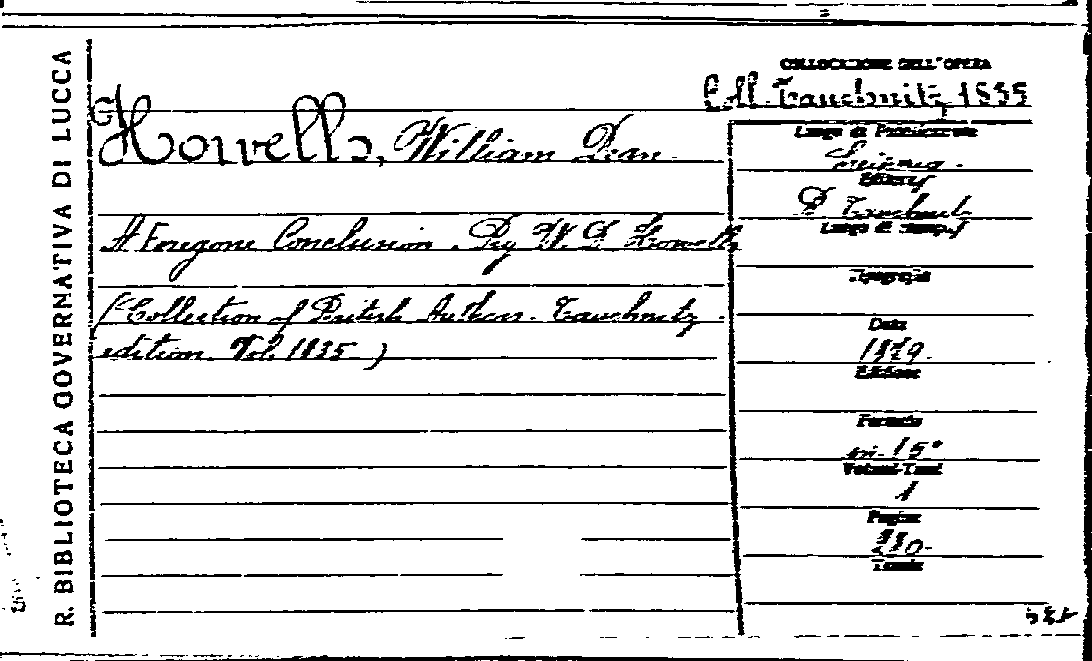 R. BIBLIOTECA GOVERNATIVA DI LUCCA
COLLOCAZIONE DELL'OPERA
Coll. Tauchnitz, 1835
Howells, William Dean
A Foregone Conclusion. By W. D. Howells
(Collection of British Authors. Tauchnitz
edition. Vol. 1835.)
Luogo di Pubblicazione
Leipzig.
Editore
B. Tauchnitz
Luogo di stampa
Tipografia
Data
1879.
Edizione
Formato
in-15°
Volumi-Tomi
1
Pagine
Tavole